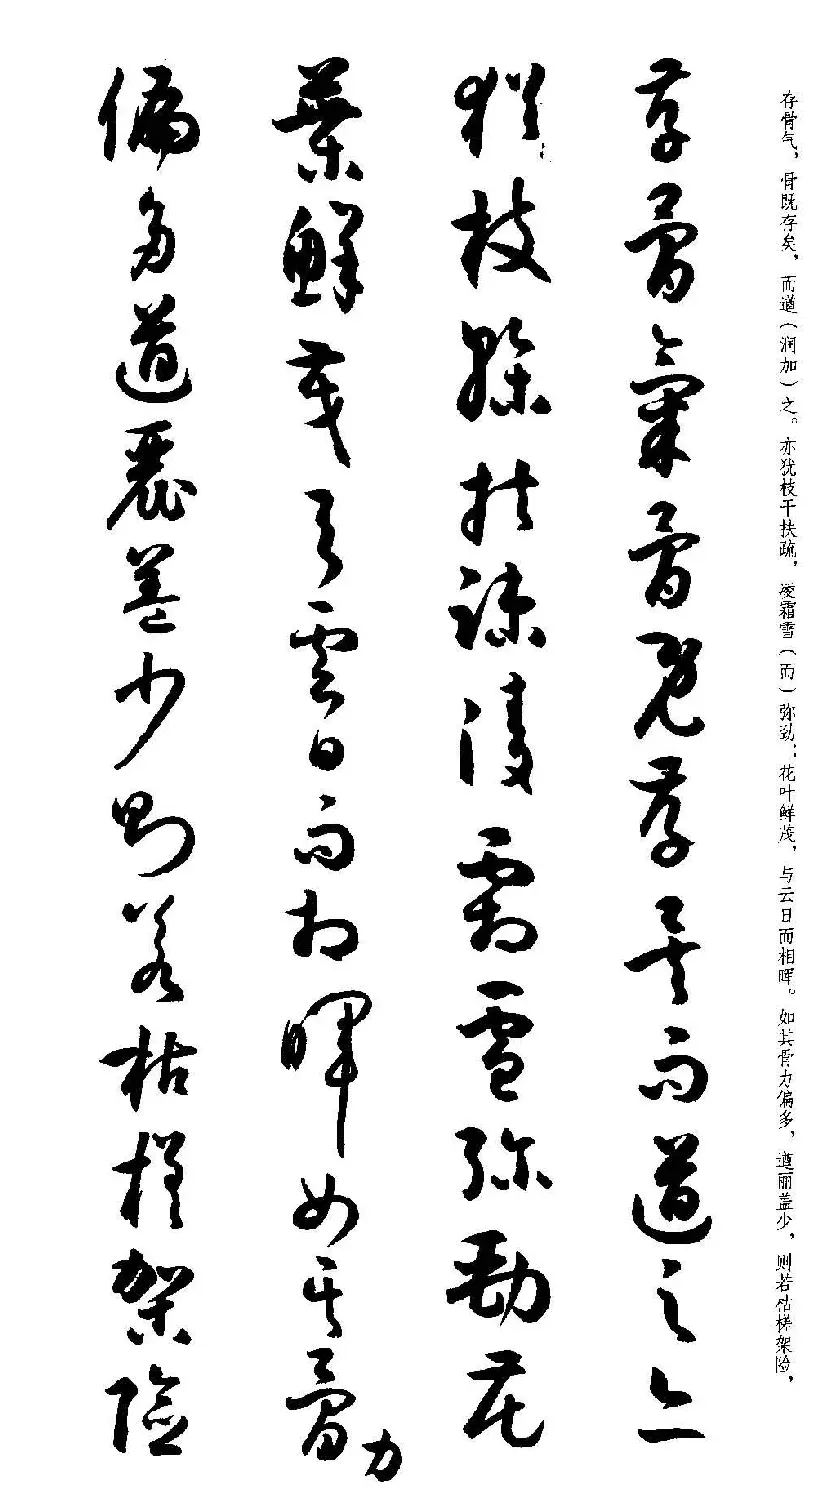 存骨气，骨既存矣，而遒（润加）之。亦犹枝干扶疏，凌霜雪（而）弥劲；花叶鲜茂，与云日而相晖。如其骨力偏多，遒丽盖少，则若枯槎架险，
存骨氣骨既存矣而遒之亦
猶枝幹扶疎凌霜雪弥勁花
葉鮮茂与雲日而相暉如其骨力
偏多遒麗蓋少則若枯槎架險